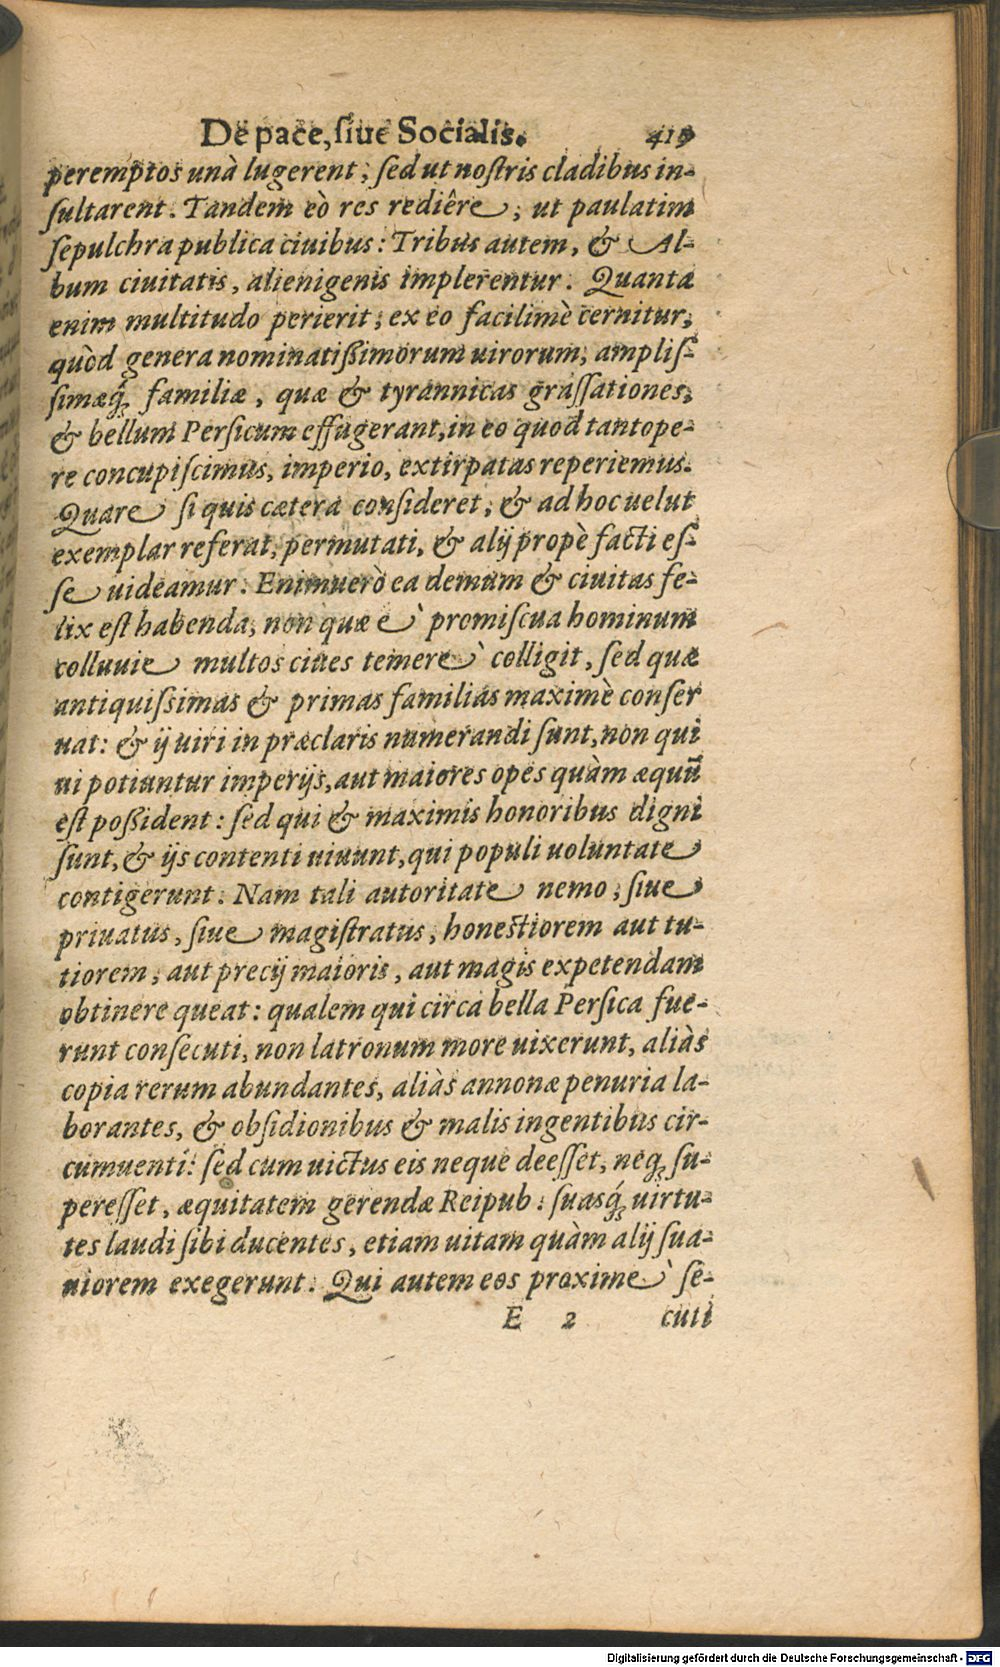 De pace, ſiue Socialis. 419
peremptos unà lugerent; ſed ut noſtris cladibus in-
ſultarent. Tandem eò res rediêre, ut paulatim
ſepulchra publica ciuibus: Tribus autem, & Al-
bum ciuitatis, alienigenis implerentur. Quanta
enim multitudo perierit, ex eo facilimè cernitur,
quòd genera nominatißimorum uirorum, ampliſ-
ſimæq́; familiæ, quæ & tyrannicas graſſationes,
& bellum Perſicum effugerant, in eo quod tantope-
re concupiſcimus, imperio, extirpatas reperiemus.
Quare ſi quis cætera conſideret, & ad hoc uelut
exemplar referat, permutati, & alij propè facti eſ-
ſe uideamur. Enimuerò ea demum & ciuitas fe-
lix eſt habenda, non quæ è promiſcua hominum
colluuie multos ciues temerè colligit, ſed quæ
antiquiſsimas & primas familias maximè conſer
uat: & ij uiri in præclaris numerandi ſunt, non qui
ui potiuntur imperijs, aut maiores opes quàm æquũ
eſt poßident: ſed qui & maximis honoribus digni
ſunt, & ijs contenti uiuunt, qui populi uoluntate
contigerunt. Nam tali autoritate nemo, ſiue
priuatus, ſiue magiſtratus, honeſtiorem aut tu-
tiorem, aut precij maioris, aut magis expetendam
obtinere queat: qualem qui circa bella Perſica fue-
runt conſecuti, non latronum more uixerunt, aliàs
copia rerum abundantes, aliàs annonæ penuria la-
borantes, & obſidionibus & malis ingentibus cir-
cumuenti: ſed cum uictus eis neque deeſſet, neq; ſu-
pereſſet, æquitatem gerendæ Reipub: ſuasq́; uirtu-
tes laudi ſibi ducentes, etiam uitam quàm alij ſua-
uiorem exegerunt. Qui autem eos proximè ſe-
E 2 cuti
Digitalisierung gefördert durch die Deutsche Forschungsgemeinschaft - DFG